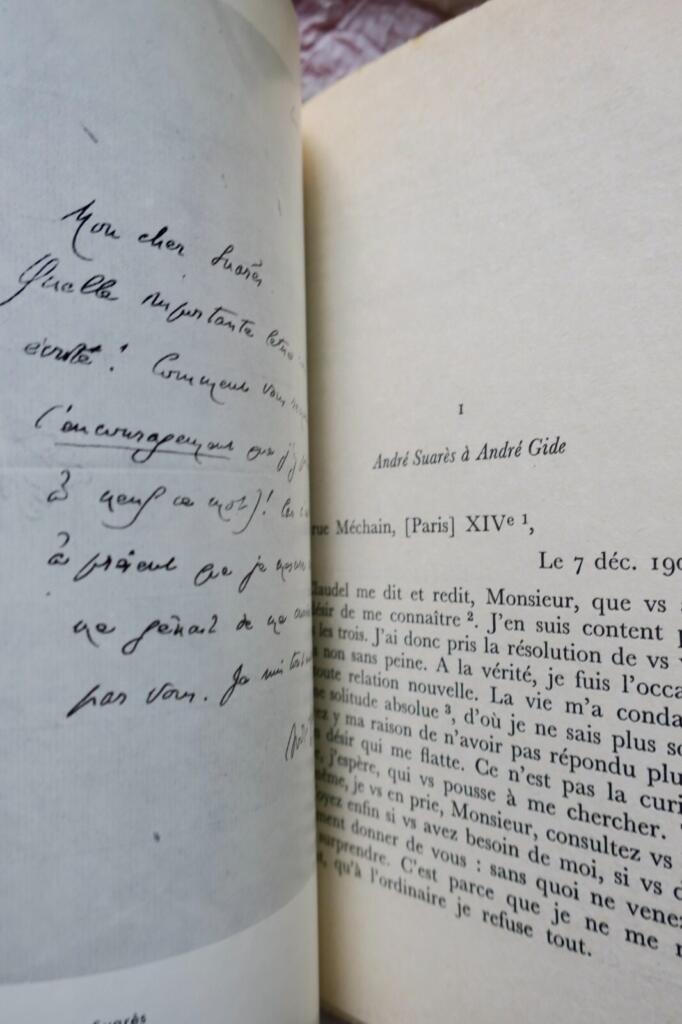 Mon cher Suarès
Quelle importante lettre
écrite ! Comment vous
l'encouragement que j'y
à neuf ce mot)!
à présent que je
me gênait de ne
par vous. Je
Suarès
I
André Suarès à André Gide
rue Méchain, [Paris] XIVe 1,
Le 7 déc. 190
Claudel me dit et redit, Monsieur, que vs
désir de me connaître 2. J'en suis content
les trois. J'ai donc pris la résolution de vs
non sans peine. A la vérité, je fuis l'occa
toute relation nouvelle. La vie m'a conda
solitude absolue 3, d'où je ne sais plus so
y ma raison de n'avoir pas répondu plu
désir qui me flatte. Ce n'est pas la curi
j'espère, qui vs pousse à me chercher.
même, je vs en prie, Monsieur, consultez vs
enfin si vs avez besoin de moi, si vs d
ment donner de vous : sans quoi ne venez
surprendre. C'est parce que je ne me
qu'à l'ordinaire je refuse tout.